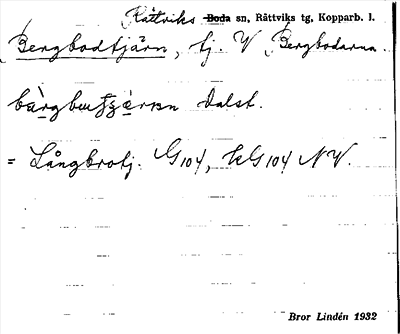 Rättviks Boda sn, Rättviks tg, Kopparb. l.
Bergbodtjärn, tj. V Bergbodarna.
Dalst.
= Långbrotj. G104, kG104 NV.
Bror Lindén 1932